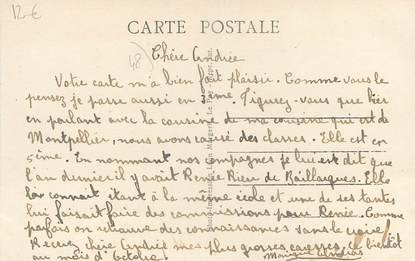 12€
CARTE POSTALE
48
Chère Andrée
Votre carte m'a bien fait plaisir. Comme vous le
pensez je passe aussi en 3ème. Figurez-vous que hier
en parlant avec la cousine de ma cousine qui est de
Montpellier, nous avons causé des classes. Elle est en
5ème. En nommant nos compagnes je lui est dit que
l'an dernier il y avait Renée Rieu de Baillargues. Elle
la connait étant à la même école et une de ses tantes
lui faisait faire des commissions pour Renée. Comme
parfois on retrouve des connaissances sans le voire
Recevez chère Andrée mes plus grosses caresses. A bientôt
au mois d'Octobre. Monique